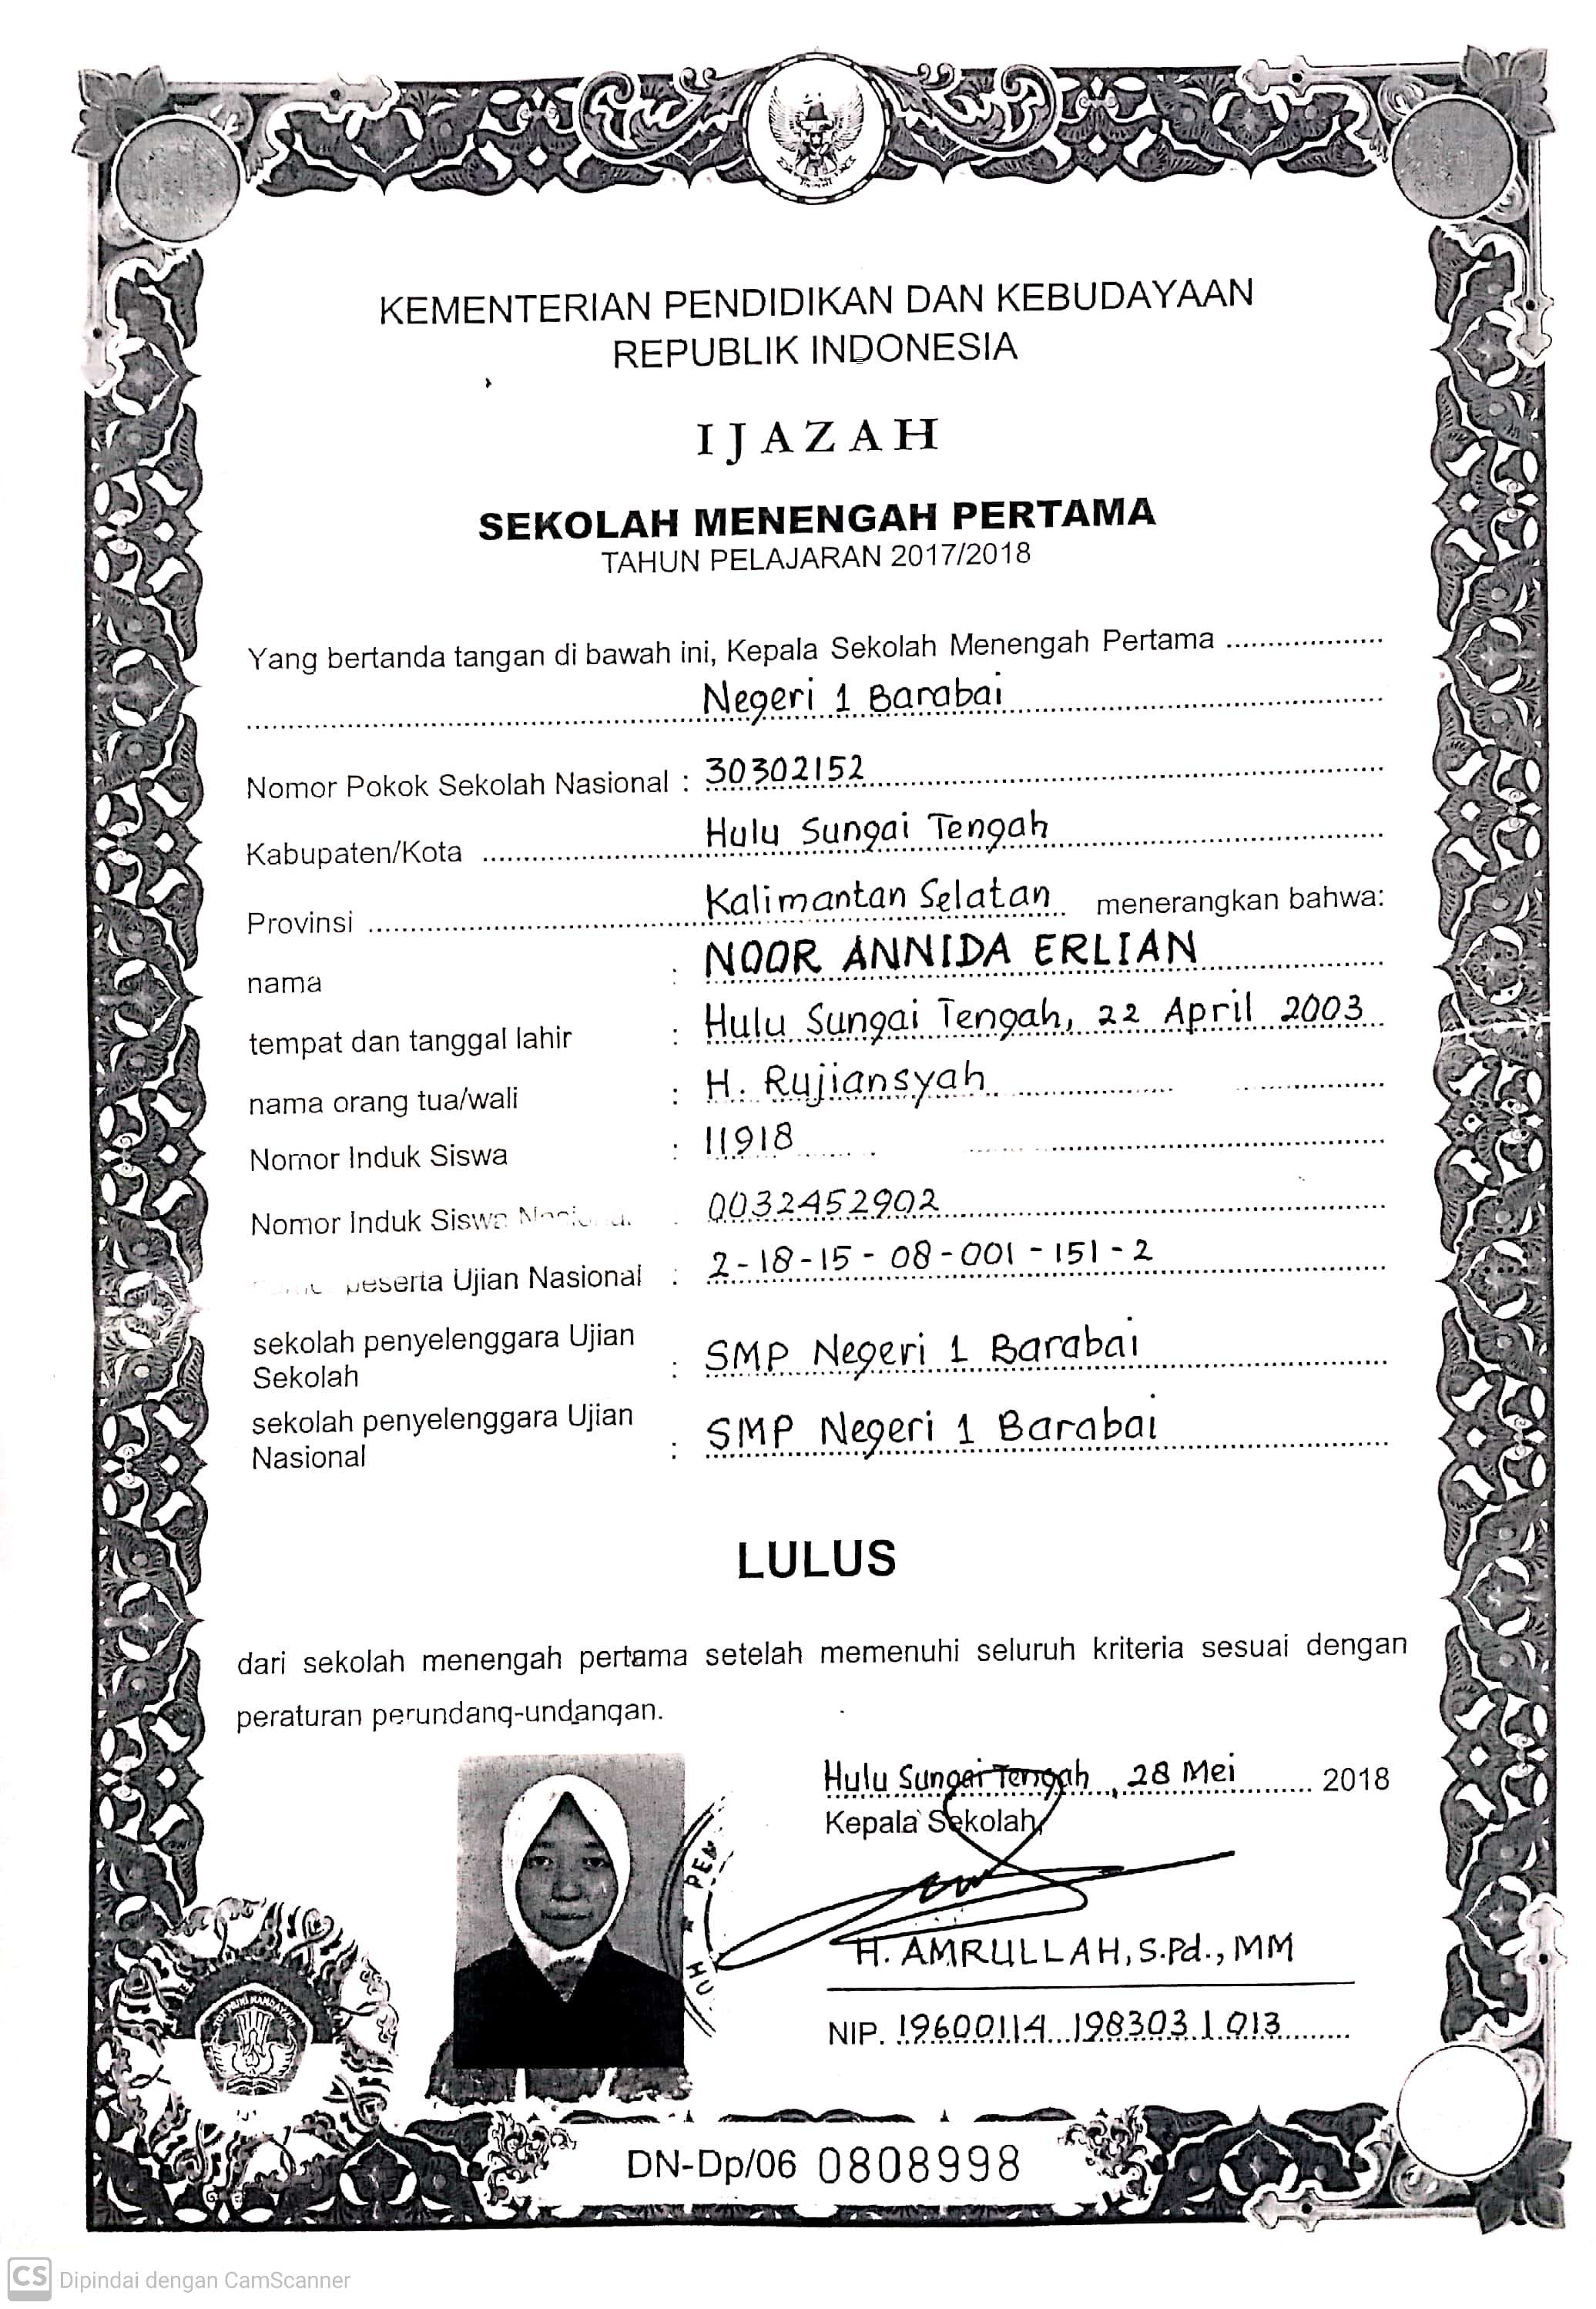 KEMENTERIAN PENDIDIKAN DAN KEBUDAYAAN
REPUBLIK INDONESIA
IJAZAH
SEKOLAH MENENGAH PERTAMA
TAHUN PELAJARAN 2017/2018
Yang bertanda tangan di bawah ini, Kepala Sekolah Menengah Pertama
Negeri 1 Barabai
Nomor Pokok Sekolah Nasional : 30302152
Kabupaten/Kota Hulu Sungai Tengah
Provinsi Kalimantan Selatan menerangkan bahwa:
nama : NOOR ANNIDA ERLIAN
tempat dan tanggal lahir : Hulu Sungai Tengah, 22 April 2003
nama orang tua/wali : H. Rujiansyah
Nomor Induk Siswa : 11918
Nomor Induk Siswa 0032452902
peserta Ujian Nasional : 2-18-15-08-001-151-2
sekolah penyelenggara Ujian
Sekolah : SMP Negeri 1 Barabai
sekolah penyelenggara Ujian
Nasional : SMP Negeri 1 Barabai
LULUS
dari sekolah menengah pertama setelah memenuhi seluruh kriteria sesuai dengan
peraturan perundang-undangan.
Hulu Sungai Tengah, 28 Mei 2018
Kepala Sekolah,
H. AMRULLAH, S.Pd., MM
NIP. 19600114 198303 1 013
DN-Dp/06 0808998
CS Dipindai dengan CamScanner